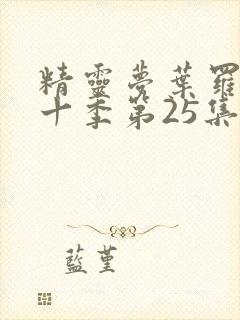 精靈夢葉羅
十季第25集
藍堇